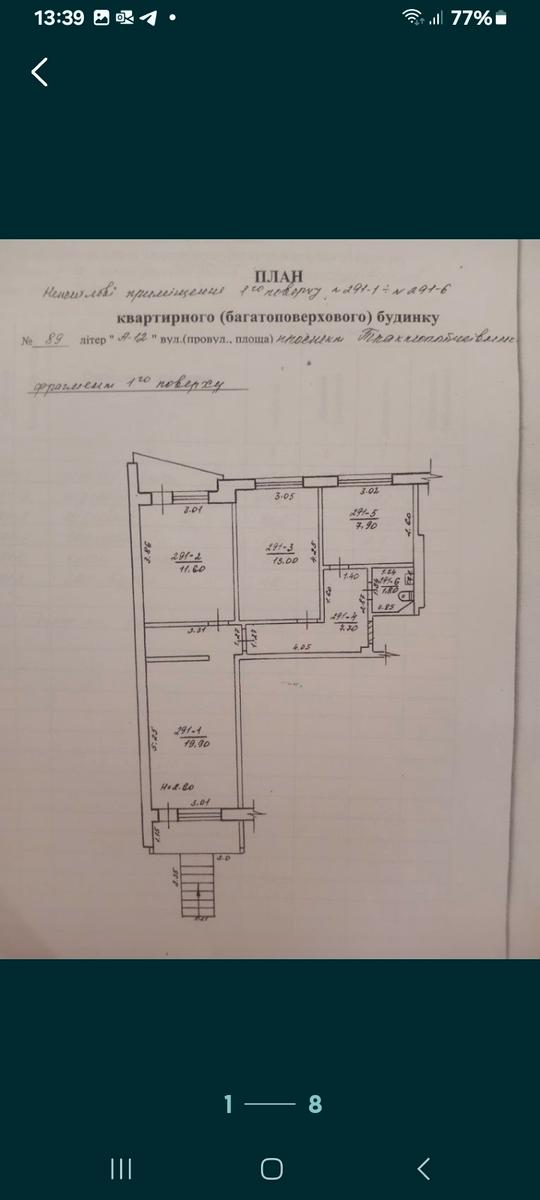 13:39
77%
ПЛАН
Нежитлові приміщення 1го поверху №291-1÷№291-6
квартирного (багатоповерхового) будинку
№ 89 літер "А-12" вул.(провул., площа) проспект
фрагмент 1го поверху
3.01
3.05
3.02
3.86
291-2
11.60
291-3
13.00
4.25
291-5
7.90
1.40
291-6
1.80
0.85
291-4
7.30
3.31
1.27
1.27
4.05
5.25
291-1
19.90
H=2.80
3.01
1.15
1 8